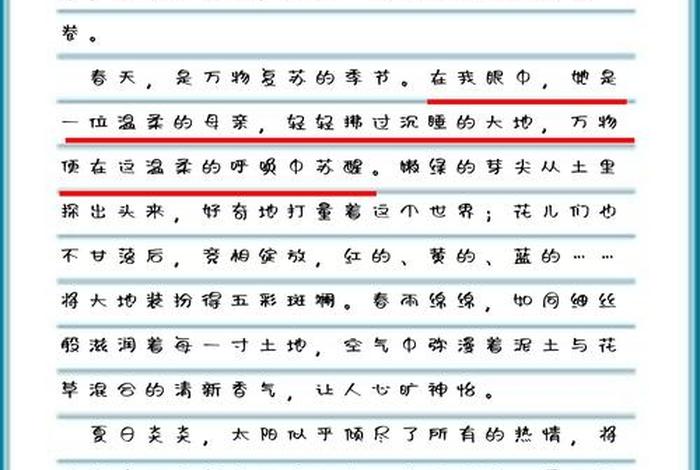 卷。
春天，是万物复苏的季节。在我眼中，她是
一位温柔的母亲，轻轻拂过沉睡的大地，万物
便在这温柔的呼唤中苏醒。嫩绿的芽尖从土里
探出头来，好奇地打量着这个世界；花儿们也
不甘落后，竞相绽放，红的、黄的、蓝的……
将大地装扮得五彩斑斓。春雨绵绵，如同细丝
般滋润着每一寸土地，空气中弥漫着泥土与花
草混合的清新香气，让人心旷神怡。
夏日炎炎，太阳似乎倾尽了所有的热情，将